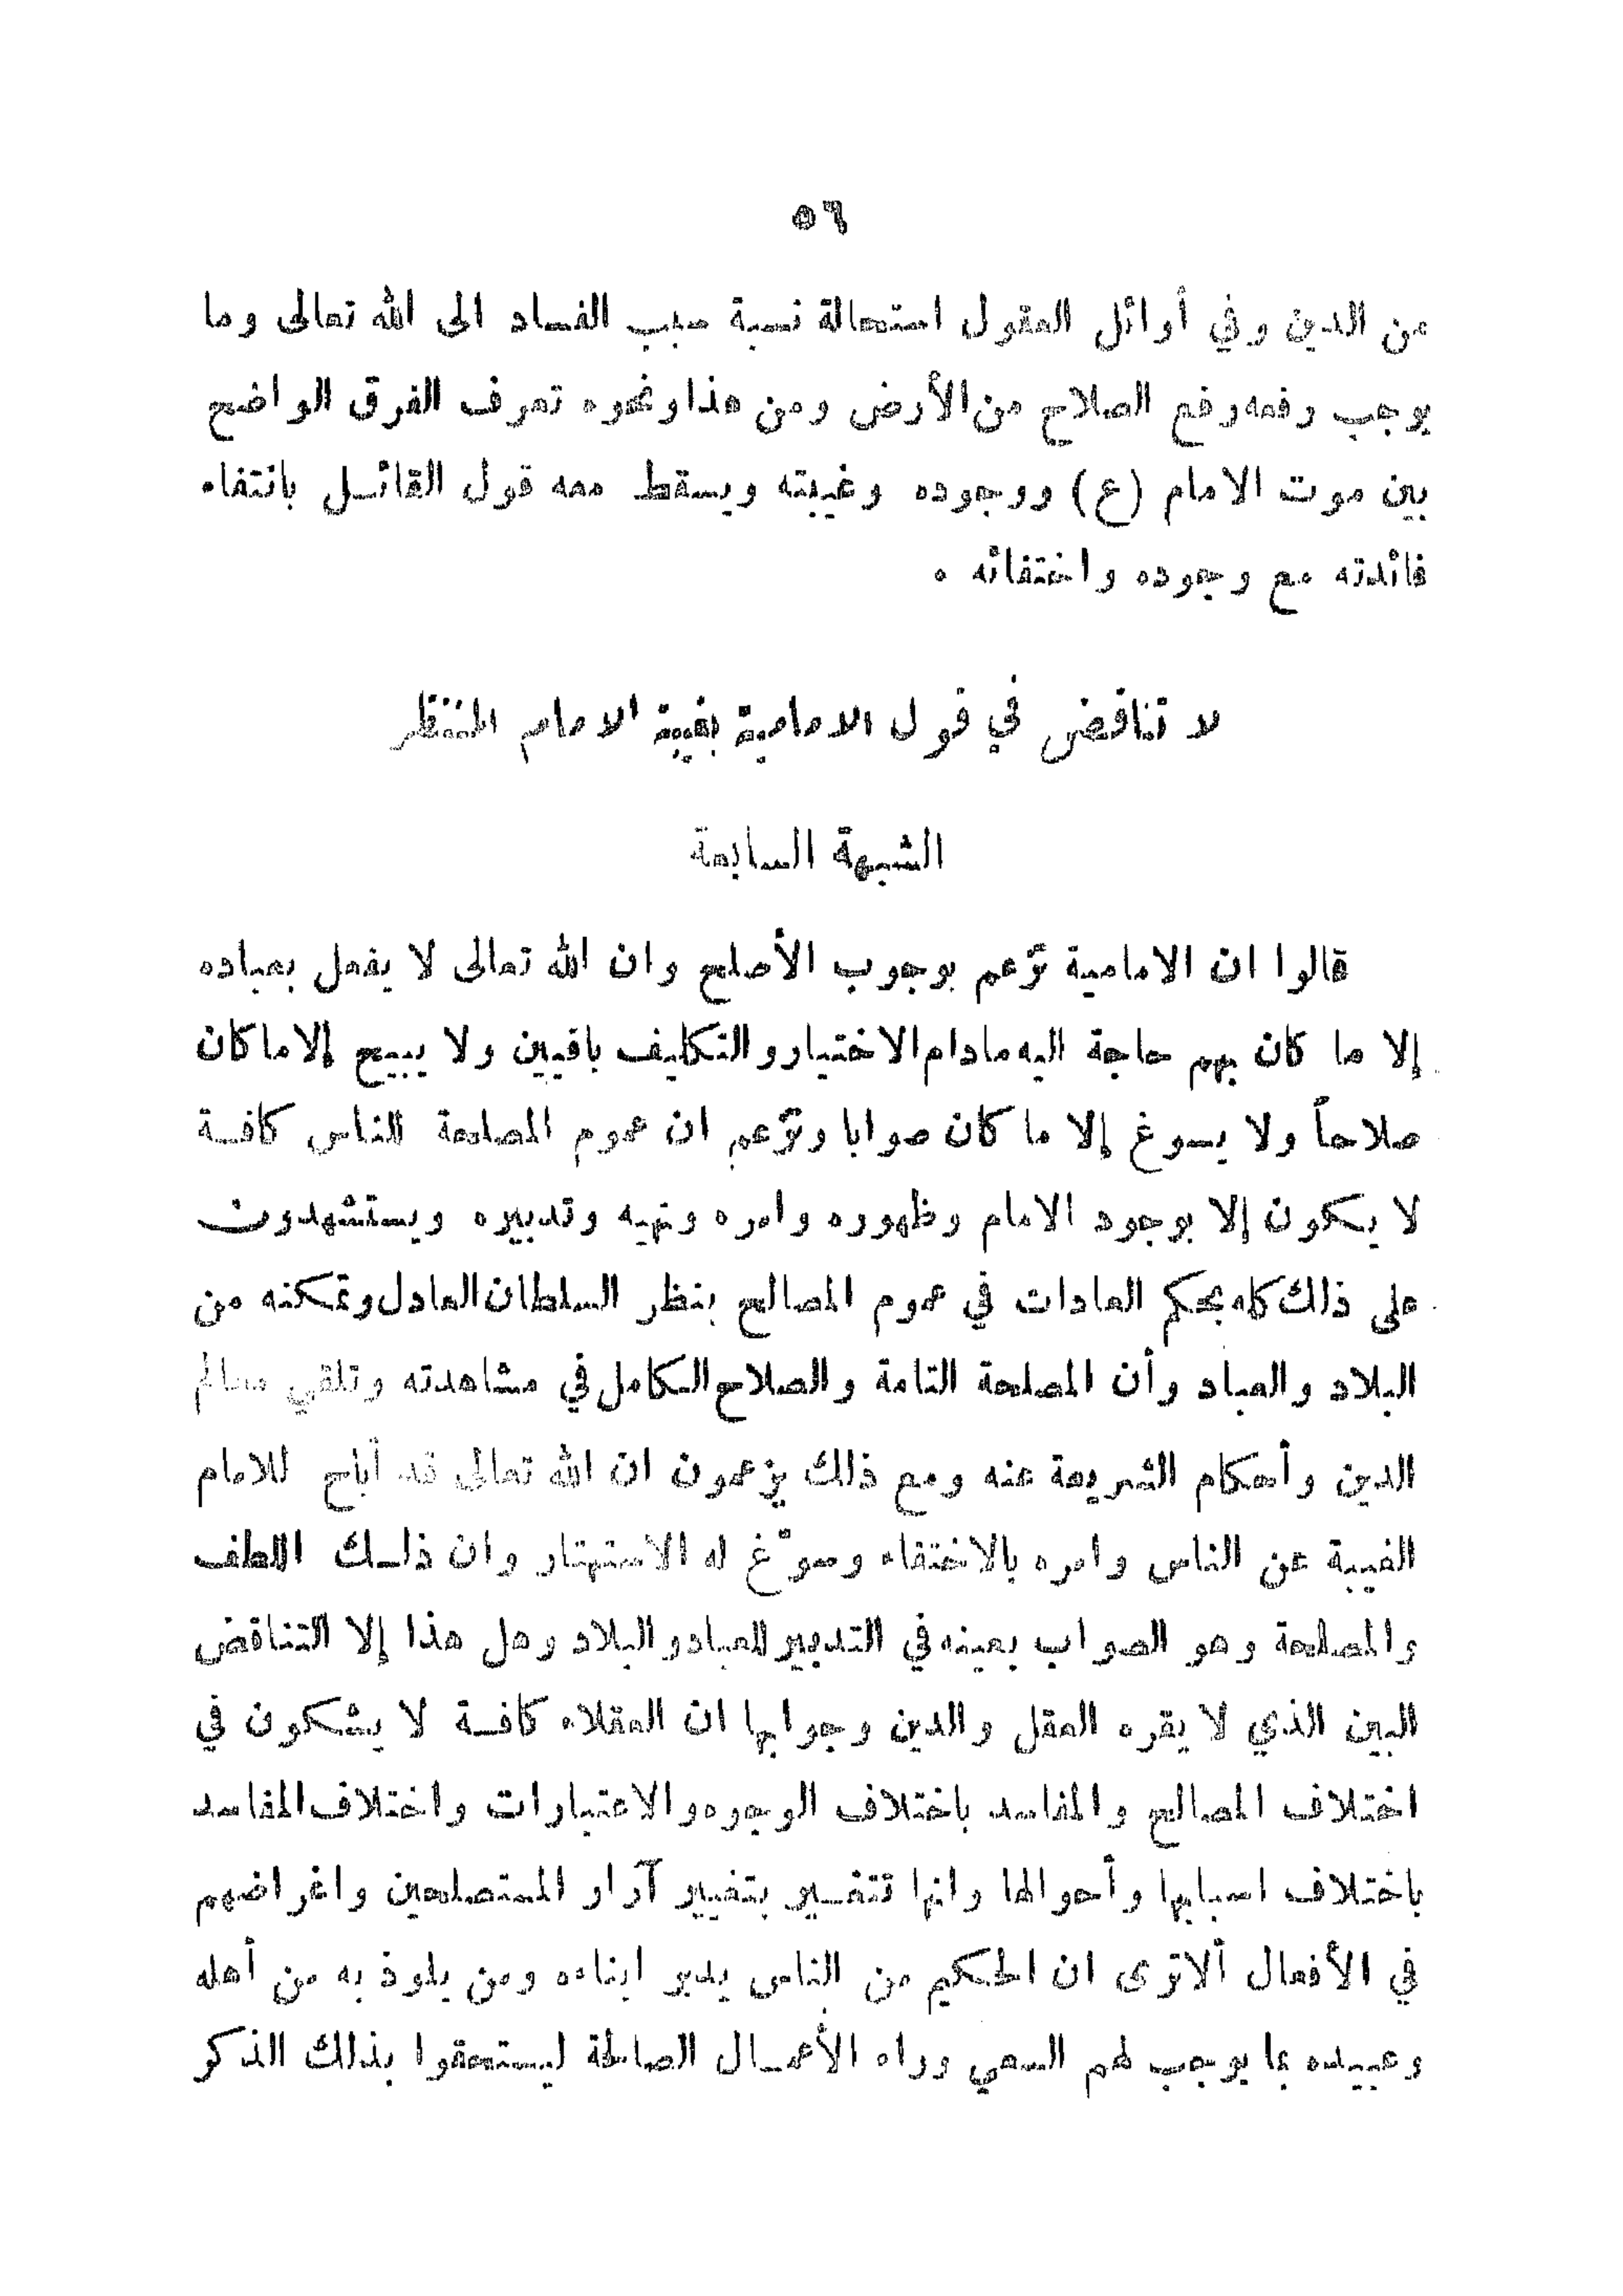 ٥٦
من الدين وفي أوائل العقول استحالة نسبة سبب الفساد الى الله تعالى وما
يوجب رفعه رفع الصلاح من الأرض ومن هذا ونحوه تعرف الفرق الواضح
بين موت الامام (ع) ووجوده وغيبته ويسقط معه قول القائل بانتفاء
فائدته مع وجوده واختفائه .
لا تناقض في قول الامامية بغيبة الامام المنتظر
الشبهة السابعة
قالوا ان الامامية تزعم بوجوب الأصلح وان الله تعالى لا يفعل بعباده
إلا ما كان بهم حاجة اليه مادام الاختيار والتكليف باقيين ولا يبيح إلا ما كان
صلاحاً ولا يسوغ إلا ما كان صوابا وتزعم ان عموم المصلحة للناس كافة
لا يكون إلا بوجود الامام وظهوره وامره ونهيه وتدبيره ويستشهدون
على ذلك كله بحكم العادات في عموم المصالح بنظر السلطان العادل وتمكنه من
البلاد والعباد وأن المصلحة التامة والصلاح الكامل في مشاهدته وتلقي معالم
الدين وأحكام الشريعة عنه ومع ذلك يزعمون ان الله تعالى قد أباح للامام
الغيبة عن الناس وامره بالاختفاء وسوّغ له الاستهتار وان ذلك اللطف
والمصلحة وهو الصواب بعينه في التدبير للعباد والبلاد وهل هذا إلا التناقض
البين الذي لا يقره العقل والدين وجوابها ان العقلاء كافة لا يشكون في
اختلاف المصالح والمفاسد باختلاف الوجوه والاعتبارات واختلاف المفاسد
باختلاف اسبابها وأحوالها وانها تتغير بتغيير آراء المستصلحين واغراضهم
في الأفعال ألا ترى ان الحكيم من الناس يدبر ابناءه ومن يلوذ به من أهله
وعبيده بما يوجب لهم السعي وراء الأعمال الصالحة ليستحقوا بذلك الذكر